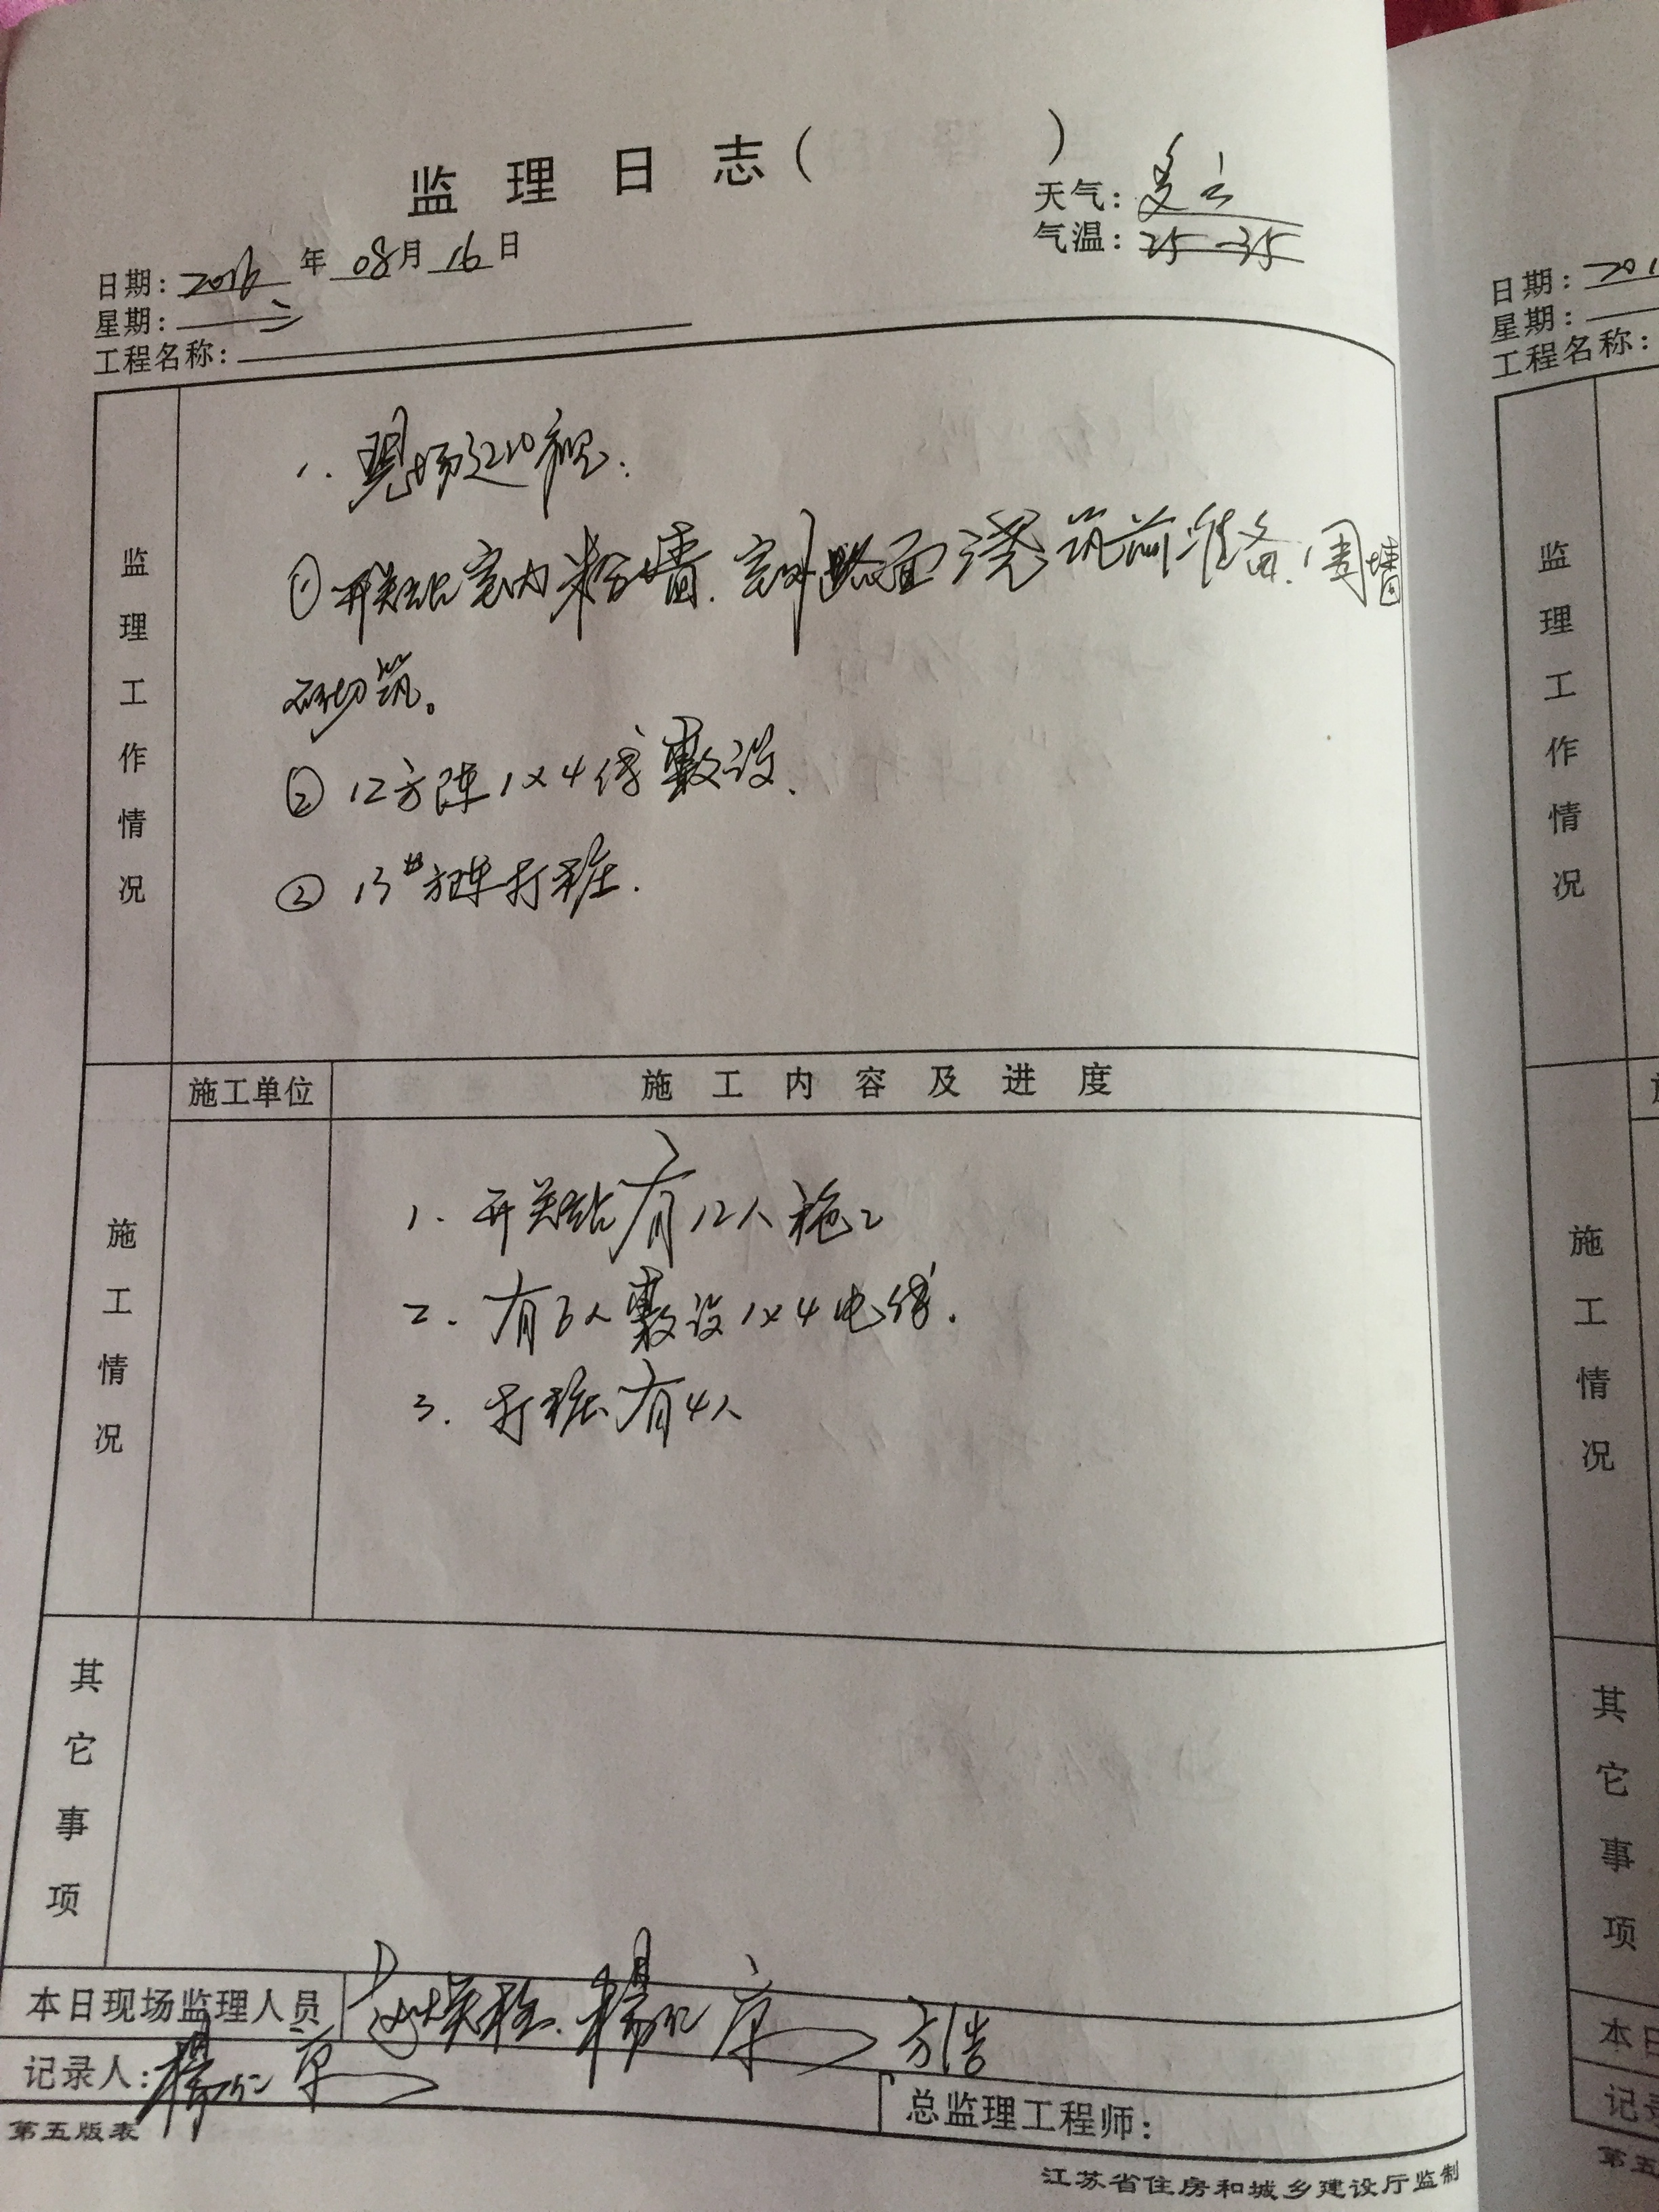 监理日志( )
天气: 多云
气温: 25-35
日期: 2016 年 08 月 16 日
星期: 二
工程名称:
监理工作情况
1. 现场巡视:
① 开关站室内粉墙、室外路面浇筑前准备、围墙
砌筑。
② 12方阵1×4线敷设、
③ 13#方阵打桩.
施工情况
施工单位 施工内容及进度
1. 开关站有12人施工
2. 有6人敷设1×4电线.
3. 打桩有4人
其它事项
本日现场监理人员 杨仁 方浩
记录人: 杨仁
总监理工程师:
第五版表
江苏省住房和城乡建设厅监制
日期: 201
星期:
工程名称:
监理工作情况
施工情况
其它事项
本日
记录
第五